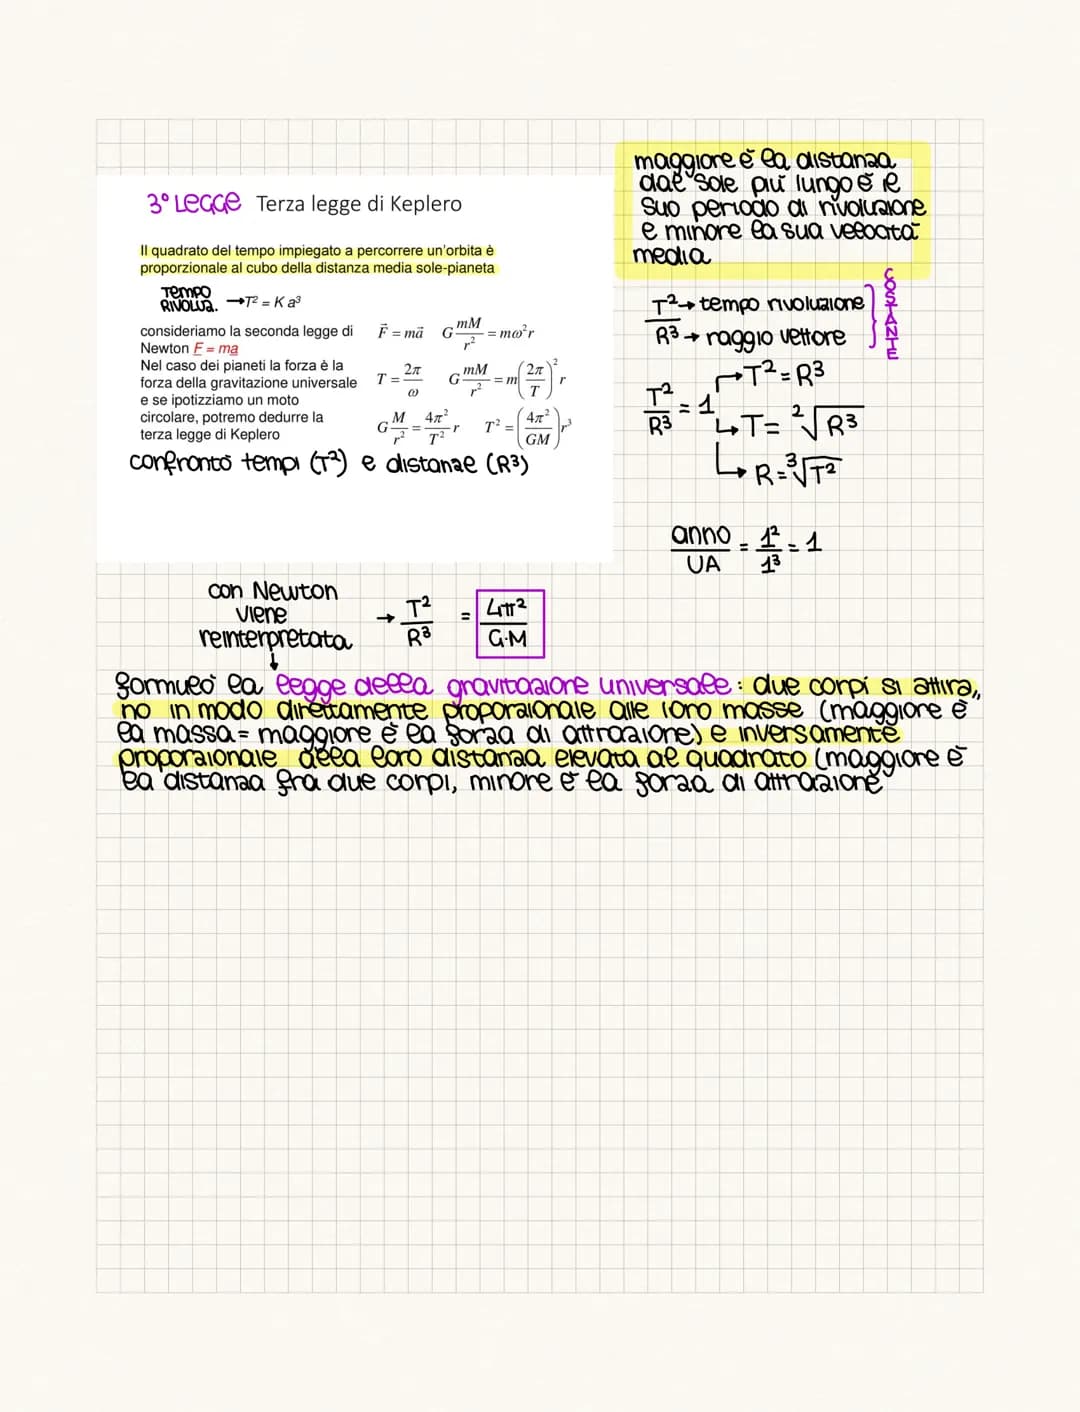 3° LEGGE Terza legge di Keplero
Il quadrato del tempo impiegato a percorrere un'orbita è
proporzionale al cubo della distanza media sole-pianeta
TEMPO
RIVOLUZ. →T² = K a³
consideriamo la seconda legge di
Newton F = ma
Nel caso dei pianeti la forza è la
forza della gravitazione universale
e se ipotizziamo un moto
circolare, potremo dedurre la
terza legge di Keplero
F⃗ = ma⃗ G mM/r² = mω²r
T = 2π/ω G mM/r² = m(2π/T)² r
G M/r² = 4π²/T² r T² = (4π²/GM) r³
confronto tempi (T²) e distanze (R³)
maggiore è la distanza
dal sole più lungo è il
suo periodo di rivoluzione
e minore la sua velocità
media
T² → tempo rivoluzione
R³ → raggio vettore
COSTANTE
T²/R³ = 1 → T² = R³
↳ T = ²√R³
↳ R = ³√T²
anno/UA = 1²/1³ = 1
con Newton
viene
reinterpretata
→ T²/R³ = 4π²/G·M
↓
formulò la legge della gravitazione universale: due corpi si attira,,
no in modo direttamente proporzionale alle loro masse (maggiore è
la massa = maggiore è la forza di attrazione) e inversamente
proporzionale della loro distanza elevata al quadrato (maggiore è
la distanza fra due corpi, minore è la forza di attrazione